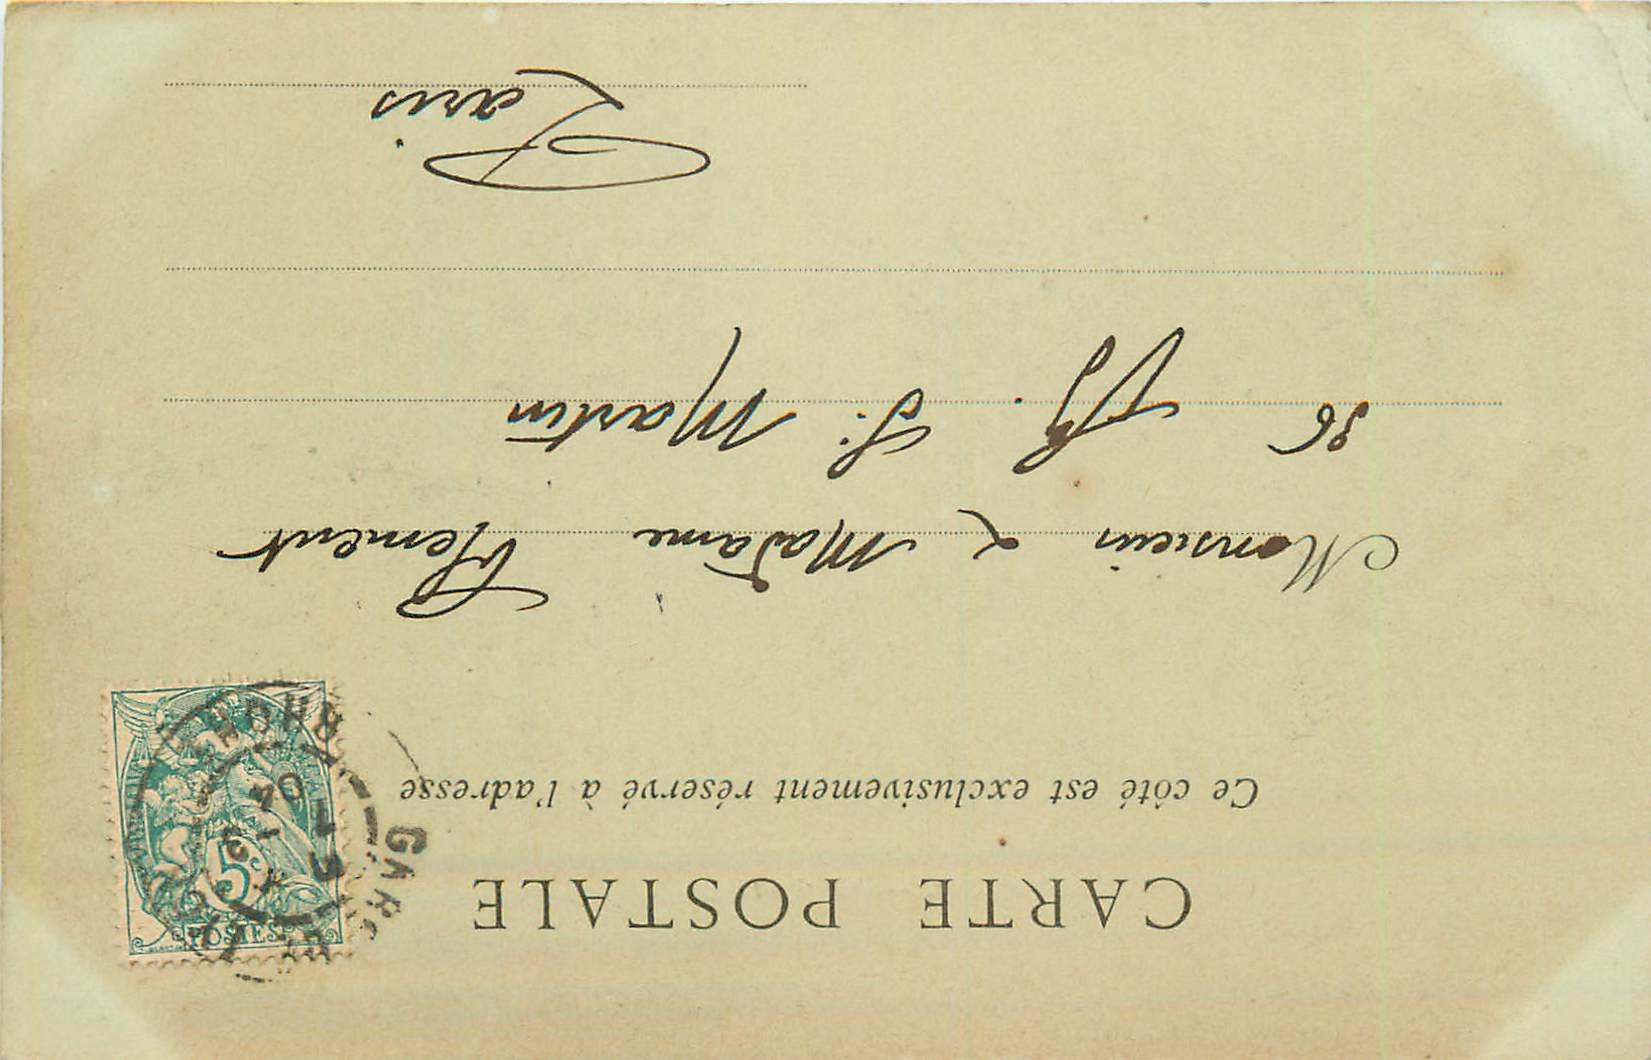 CARTE POSTALE
Ce côté est exclusivement réservé à l'adresse
Monsieur & Madame Clement
36 Fg. St Martin
Paris
POSTES
5c
GARE
RHONE
04